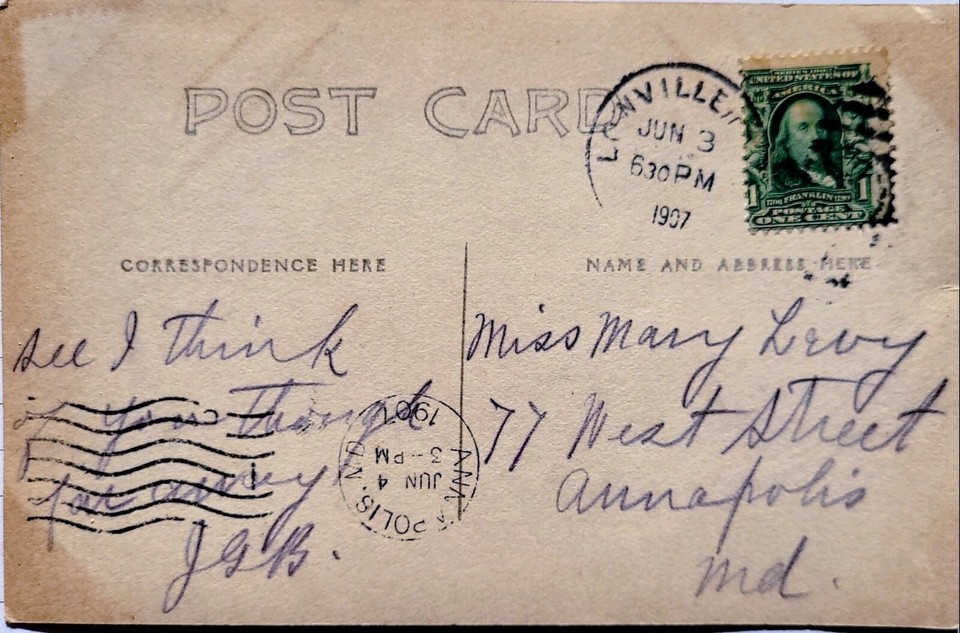 POST CARD
JUN 3
630 PM
1907
SERIES 1902
UNITED STATES OF
AMERICA
1 1
1706 FRANKLIN 1790
POSTAGE
ONE CENT
CORRESPONDENCE HERE
see I think
of you though
far away
JGB.
ANNAPOLIS,
JUN 4
3 - PM
190
NAME AND ADDRESS HERE
Miss Mary Levy
77 West Street
Annapolis
Md.